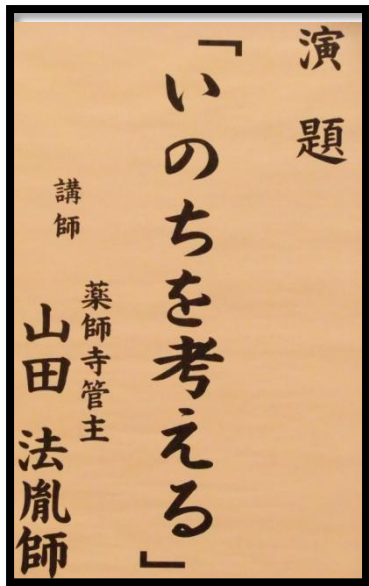 演題
「いのちを考える」
講師
薬師寺管主
山田法胤師